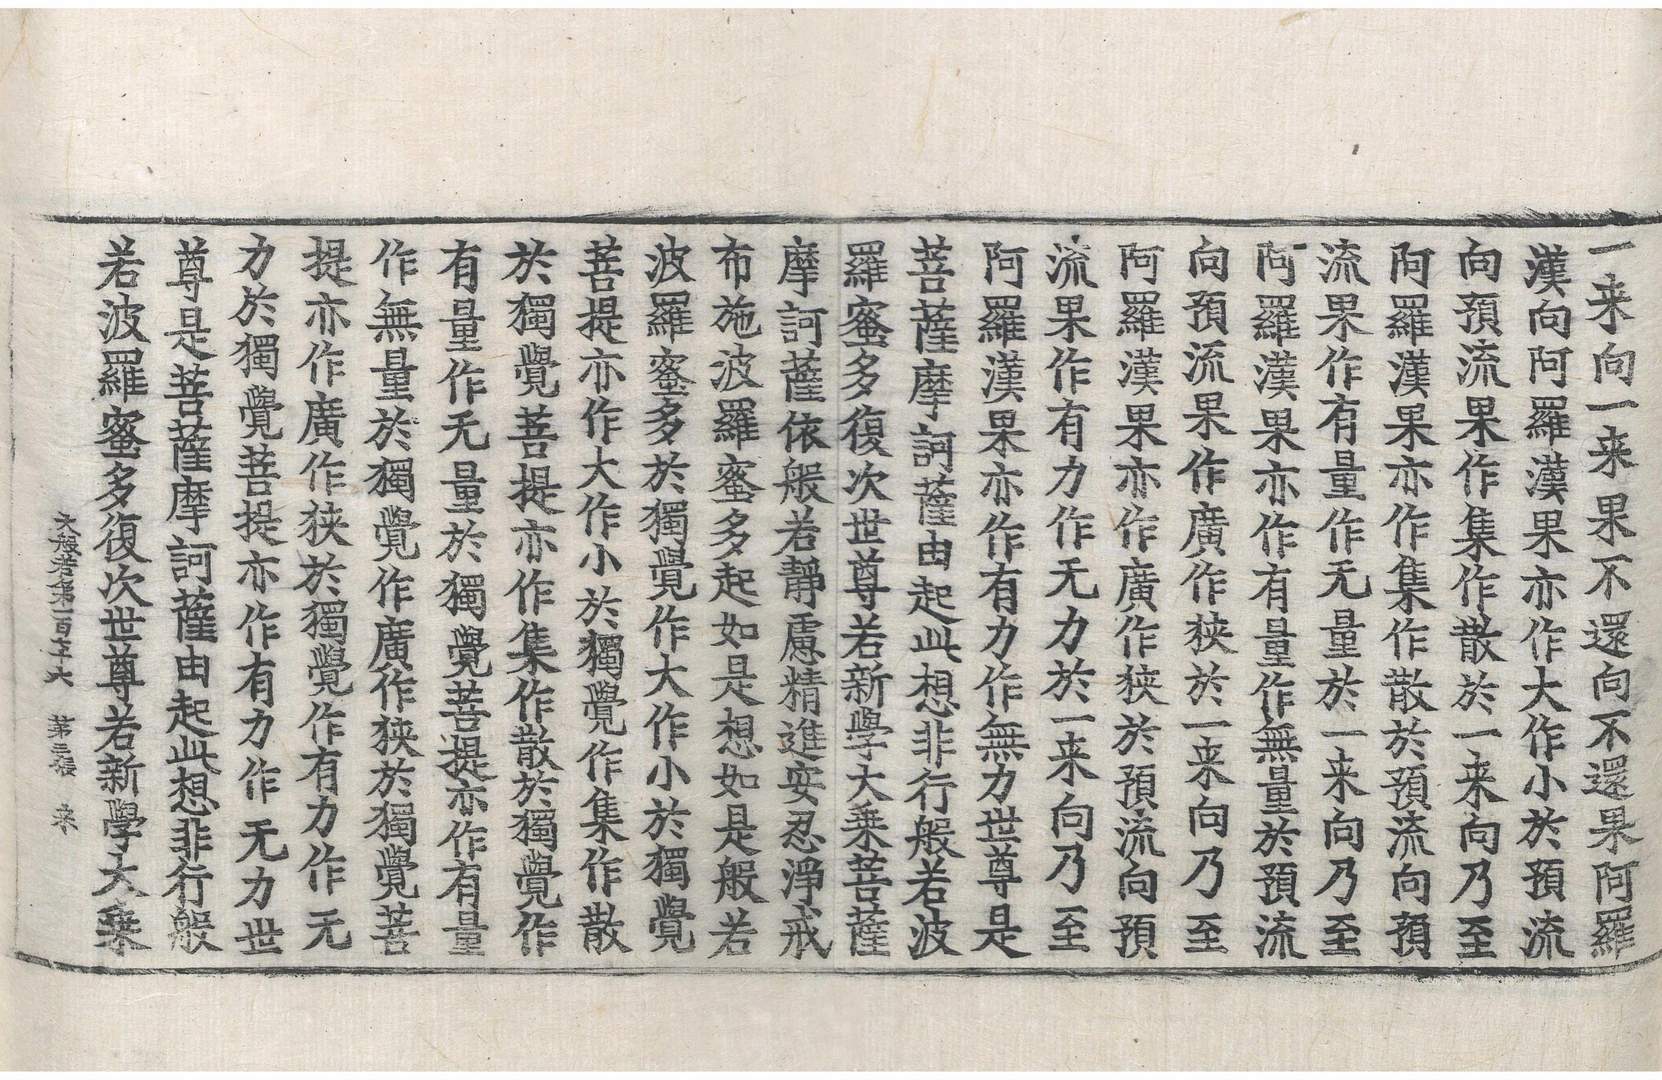 一来向一来果不還向不還果阿羅
漢向阿羅漢果亦作大作小於預流
向預流果作集作散於一来向乃至
阿羅漢果亦作集作散於預流向預
流果作有量作无量於一来向乃至
阿羅漢果亦作有量作無量於預流
向預流果作廣作狭於一来向乃至
阿羅漢果亦作廣作狭於預流向預
流果作有力作无力於一来向乃至
阿羅漢果亦作有力作無力世尊是
菩薩摩訶薩由起此想非行般若波
羅蜜多復次世尊若新學大乗菩薩
摩訶薩依般若靜慮精進安忍淨戒
布施波羅蜜多起如是想如是般若
波羅蜜多於獨覺作大作小於獨覺
菩提亦作大作小於獨覺作集作散
於獨覺菩提亦作集作散於獨覺作
有量作无量於獨覺菩提亦作有量
作無量於獨覺作廣作狭於獨覺菩
提亦作廣作狭於獨覺作有力作无
力於獨覺菩提亦作有力作无力世
尊是菩薩摩訶薩由起此想非行般
若波羅蜜多復次世尊若新學大乗
大般若第一百七十六 第三張 来